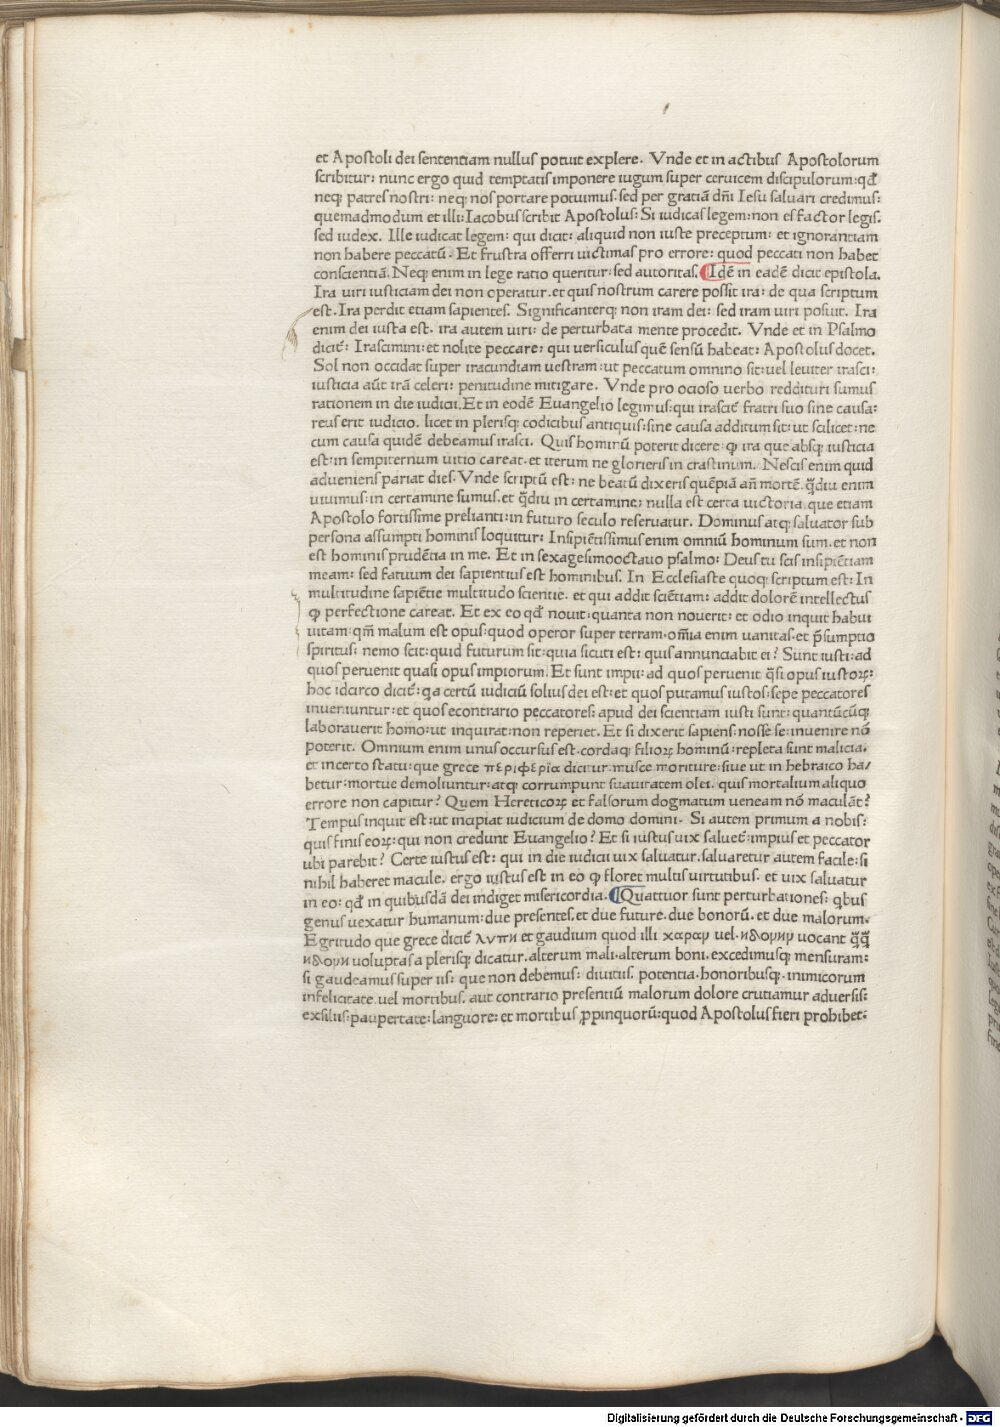 et Apostoli dei sententiam nullus potuit explere. Vnde et in actibus Apostolorum
scribitur: nunc ergo quid temptatis imponere iugum super ceruicem discipulorum: qđ
neqȝ patres nostri: neqȝ nos portare potuimus. sed per gratiã dñi Iesu saluari credimus:
quemadmodum et illi: Iacobus scribit Apostolus: Si iudicas legem: non es factor legis.
sed iudex. Ille iudicat legem: qui dicit: aliquid non iuste preceptum: et ignorantiam
non habere peccatũ. Et frustra offerri uictimas pro errore: quod peccati non habet
conscientiã. Neqȝ enim in lege ratio queritur: sed autoritas. Idẽ in eadẽ dicit epistola.
Ira uiri iusticiam dei non operatur. et quis nostrum carere possit ira: de qua scriptum
est. Ira perdit etiam sapientes. Significanterqȝ non iram dei: sed iram uiri posuit. Ira
enim dei iusta est. ira autem uiri: de perturbata mente procedit. Vnde et in Psalmo
dicit̃: Irascimini: et nolite peccare: qui uersiculus quẽ sensũ habeat: Apostolus docet.
Sol non occidat super iracundiam uestram: ut peccatum omnino sit: uel leuiter irasci:
iusticia aũt irã celeri: penitudine mitigare. Vnde pro ocioso uerbo reddituri sumus
rationem in die iudicii. Et in eodẽ Euangelio legimus: qui irascit̃ fratri suo sine causa:
reus erit iudicio. licet in plerisqȝ codicibus antiquis: sine causa additum sit: ut scilicet: ne
cum causa quidẽ debeamus irasci. Quis hominũ poterit dicere: ꝙ ira que absqȝ iusticia
est: in sempiternum uitio careat. et iterum ne glorieris in crastinum. Nescis enim quid
adueniens pariat dies. Vnde scriptũ est: ne beatũ dixeris quẽpiã añ mortẽ. q̃diu enim
uiuimus: in certamine sumus. et q̃diu in certamine: nulla est certa uictoria. que etiam
Apostolo fortissime prelianti: in futuro seculo reseruatur. Dominus atqȝ saluator sub
persona assumpti hominis loquitur: Insipiẽtissimus enim omniũ hominum sum. et non
est hominis prudẽtia in me. Et in sexagesimooctauo psalmo: Deus tu scis insipiẽtiam
meam: sed fatuum dei sapientius est hominibus. In Ecclesiaste quoqȝ scriptum est: In
multitudine sapiẽtie multitudo scientie. et qui addit sciẽtiam: addit dolorẽ intellectus
ꝙ perfectione careat. Et ex eo qđ nouit: quanta non nouerit: et odio inquit habui
uitam: qm̃ malum est opus: quod operor super terram. om̃ia enim uanitas. et p̃sumptio
spiritus: nemo scit: quid futurum sit: quia sicuti est: quis annunciabit ei? Sunt iusti: ad
quos peruenit quasi opus impiorum. Et sunt impii: ad quos peruenit q̃si opus iustoꝝ:
hoc idcirco dicit̃: qa certũ iudiciũ solius dei est: et quos putamus iustos: sepe peccatores
inueniuntur: et quos econtrario peccatores: apud dei scientiam iusti sunt: quantũcũqȝ
laborauerit homo: ut inquirat: non reperiet. Et si dixerit sapiens: nosse se: inuenire nõ
poterit. Omnium enim unus occursus est. cordaqȝ filioꝝ hominũ: repleta sunt malicia.
et incerto statu: que grece περιφερια dicitur. musce moriture: siue ut in hebraico ha/
betur: mortue demoliuntur: atqȝ corrumpunt suauitatem olei. quis mortalium aliquo
errore non capitur? Quem Hereticoꝝ et falsorum dogmatum ueneam nõ maculãt?
Tempus inquit est: ut incipiat iudicium de domo domini. Si autem primum a nobis:
quis finis eoꝝ: qui non credunt Euangelio? Et si iustus uix saluet̃: impius et peccator
ubi parebit? Certe iustus est: qui in die iudicii uix saluatur. saluaretur autem facile: si
nihil haberet macule. ergo iustus est in eo ꝙ floret multis uirtutibus. et uix saluatur
in eo: qđ in quibusdã dei indiget misericordia. Quattuor sunt perturbationes: qbus
genus uexatur humanum: due presentes. et due future. due bonorũ. et due malorum.
Egritudo que grece dicit̃ λυπη et gaudium quod illi χαραν uel. ηδονην uocant q̃q̃
ηδονη uoluptas a plerisqȝ dicatur. alterum mali. alterum boni. excedimusqȝ mensuram:
si gaudeamus super iis: que non debemus: diuitiis. potentia. honoribusqȝ. inimicorum
infelicitate. uel mortibus. aut contrario presentiũ malorum dolore crutiamur aduersis:
exsiliis: paupertate: languore: et mortibus ꝓpinquorũ: quod Apostolus fieri prohibet:
Digitalisierung gefördert durch die Deutsche Forschungsgemeinschaft - DFG